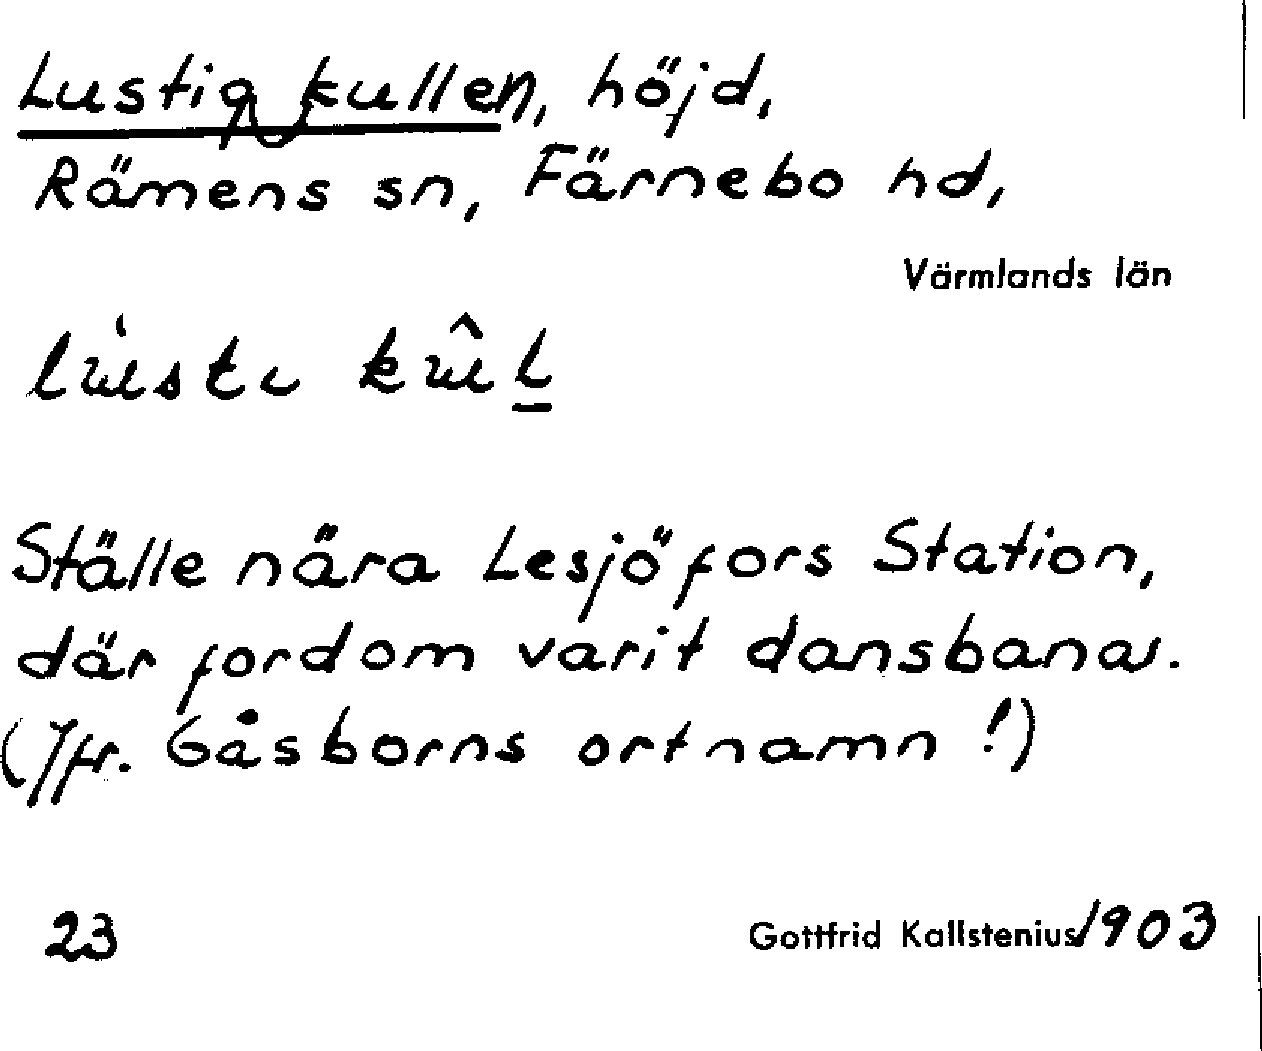 Lustigkullen, höjd,
Rämens sn, Färnebo hd,
Värmlands län
Ställe nära Lesjöfors Station,
där fordom varit dansbana.
(Jfr. Gåsborns ortnamn !)
23
Gottfrid Kallstenius/1903